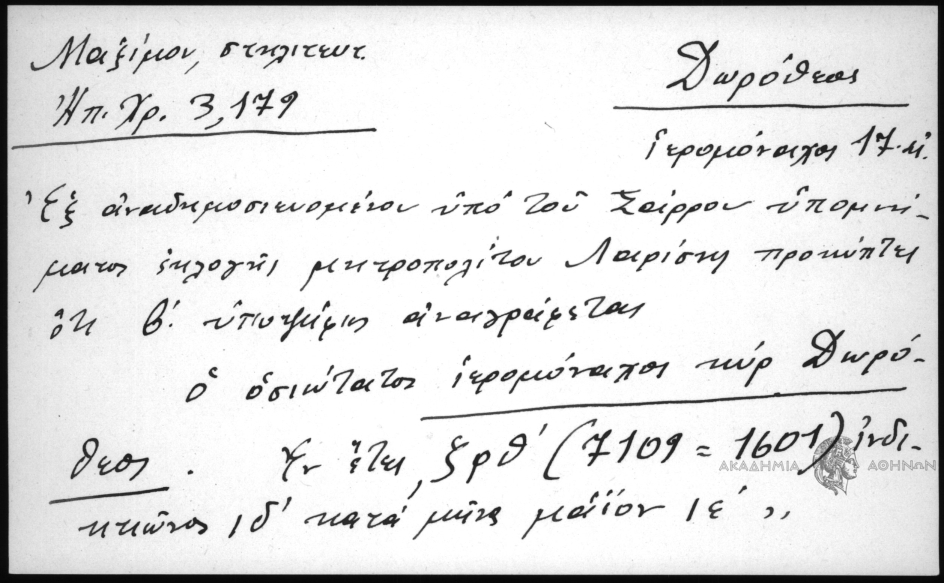 Μαξίμου, στηλιτευτ.
Ἠπ. Χρ. 3, 179
Δωρόθεος
ἱερομόναχος 17. αἰ.
Ἐξ ἀναδημοσιευομένου ὑπὸ τοῦ Σπύρρου ὑπομνή-
ματος ἐκλογῆς μητροπολίτου Λαρίσης προκύπτει
ὅτι β΄. ὑποψήφιος ἀναγράφεται
ὁ ὁσιώτατος ἱερομόναχος κύρ Δωρό-
θεος. Ἐν ἔτει ͵ζρθ΄ (7109 = 1601) ἰνδι-
κτιῶνος ιδ΄ κατά μῆνα μάϊον ιε΄ ,,
ΑΚΑΔΗΜΙΑ ΑΘΗΝΩΝ